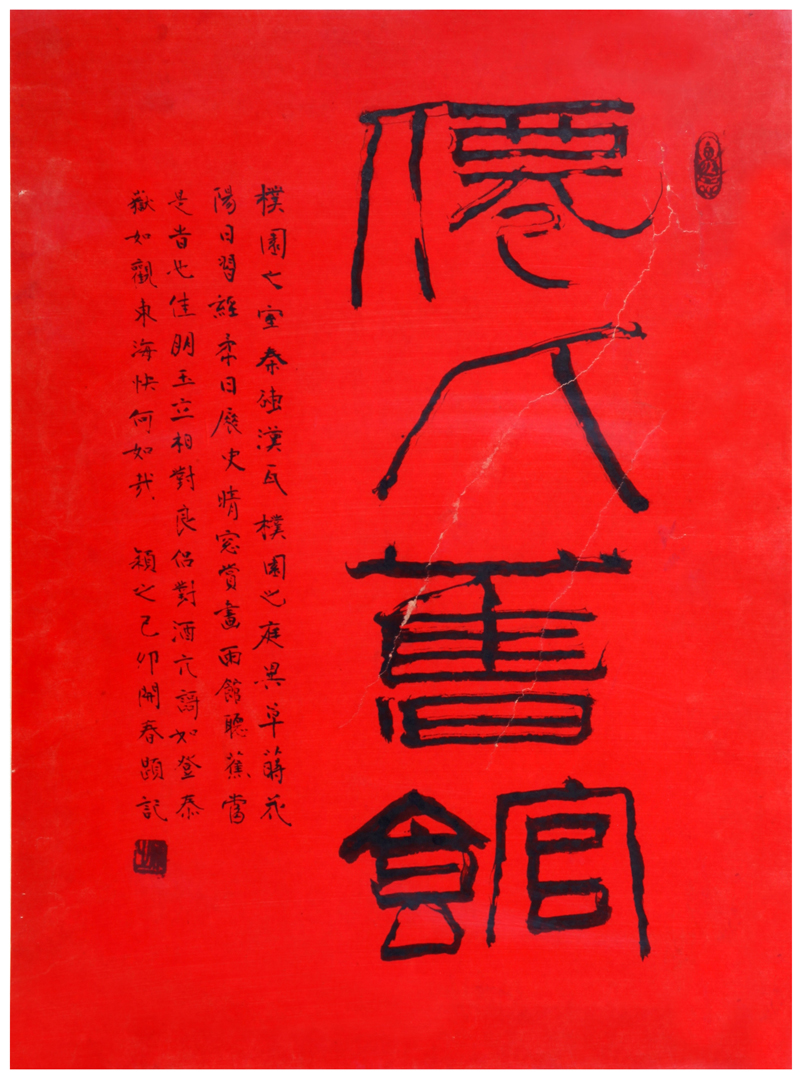 僊人書館
樸園之室秦磚漢瓦樸園之庭異草蒔花
陽日習經柔日展史晴窓賞畫雨館聽蕉當
是旹也佳朋玉立相對良侶對酒亢謌如登泰
嶽如觀東海快何如哉 穎之己卯開春題記